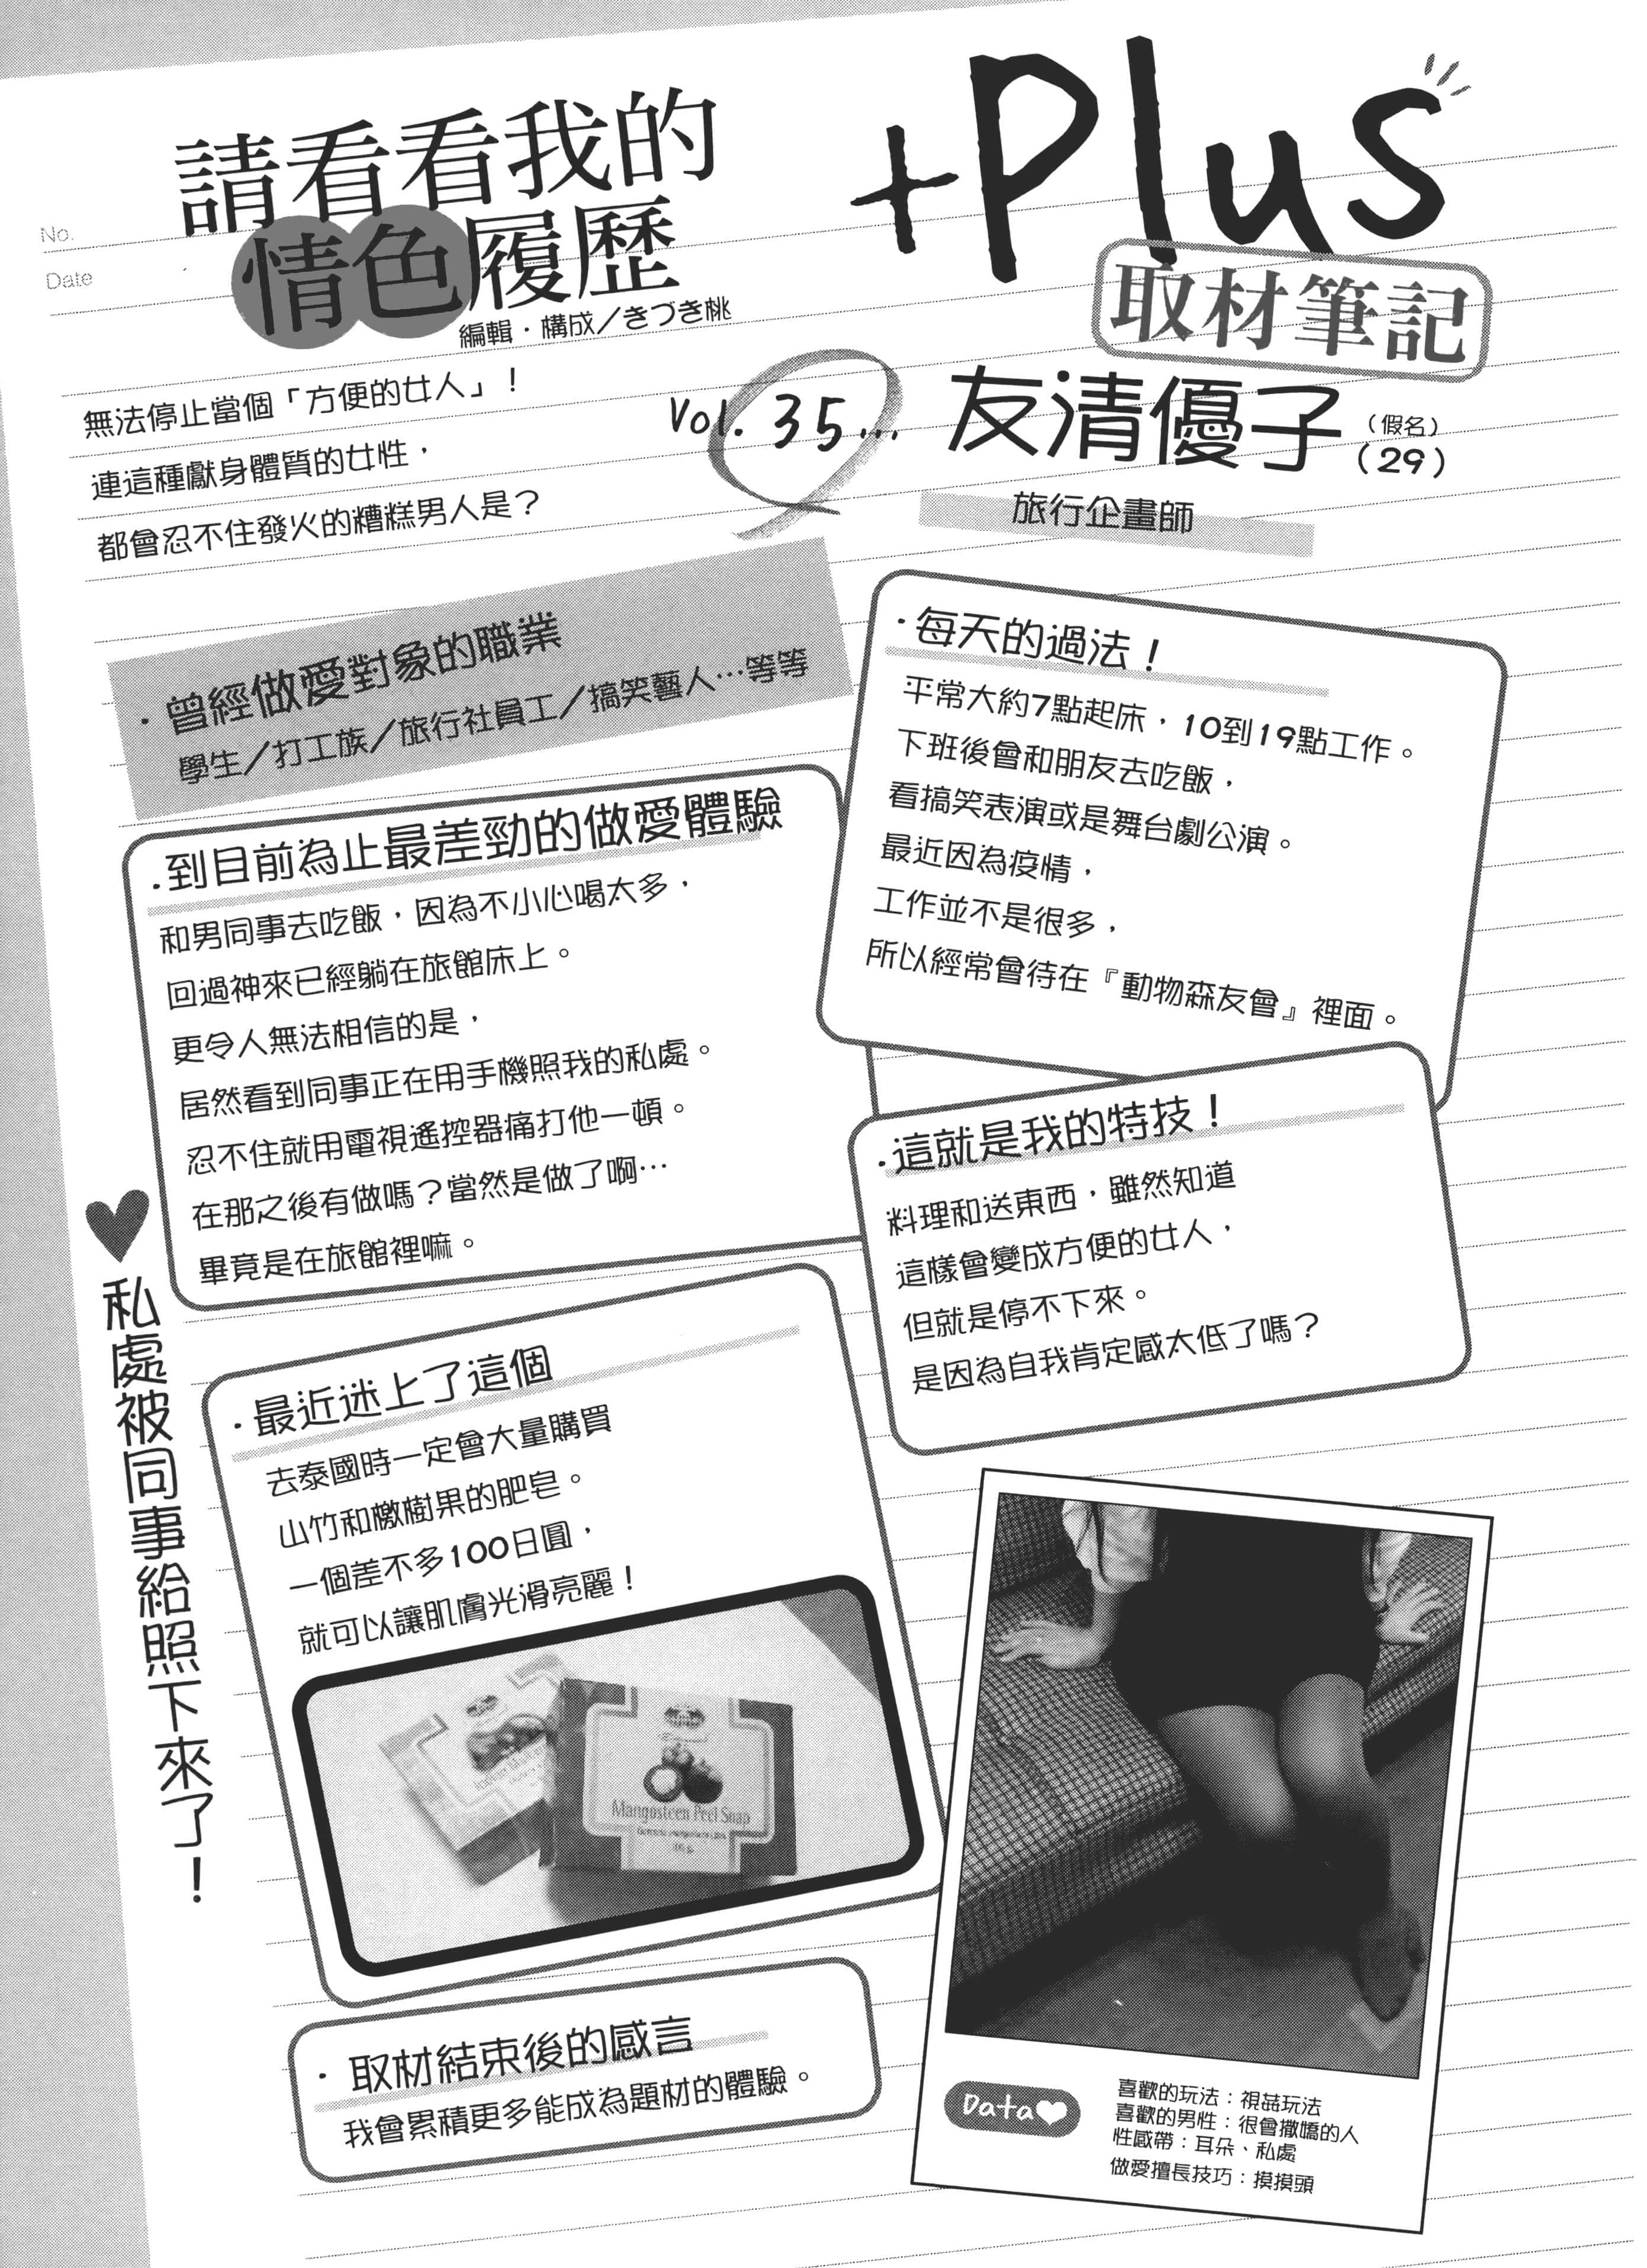 No.
Date
請看看我的
情色履歷
編輯・構成／きづき桃
+Plus
取材筆記
無法停止當個「方便的女人」！
連這種獻身體質的女性，
都會忍不住發火的糟糕男人是？
Vol. 35…
友清優子
（假名）
（29）
旅行企畫師
・曾經做愛對象的職業
學生／打工族／旅行社員工／搞笑藝人…等等
・每天的過法！
平常大約7點起床，10到19點工作。
下班後會和朋友去吃飯，
看搞笑表演或是舞台劇公演。
最近因為疫情，
工作並不是很多，
所以經常會待在『動物森友會』裡面。
・到目前為止最差勁的做愛體驗
和男同事去吃飯，因為不小心喝太多，
回過神來已經躺在旅館床上。
更令人無法相信的是，
居然看到同事正在用手機照我的私處。
忍不住就用電視遙控器痛打他一頓。
在那之後有做嗎？當然是做了啊…
畢竟是在旅館裡嘛。
・這就是我的特技！
料理和送東西，雖然知道
這樣會變成方便的女人，
但就是停不下來。
是因為自我肯定感太低了嗎？
♥私處被同事給照下來了！
・最近迷上了這個
去泰國時一定會大量購買
山竹和檄樹果的肥皂。
一個差不多100日圓，
就可以讓肌膚光滑亮麗！
Mangosteen Peel Soap
・取材結束後的感言
我會累積更多能成為題材的體驗。
Data♥
喜歡的玩法：視姦玩法
喜歡的男性：很會撒嬌的人
性感帶：耳朵、私處
做愛擅長技巧：摸摸頭